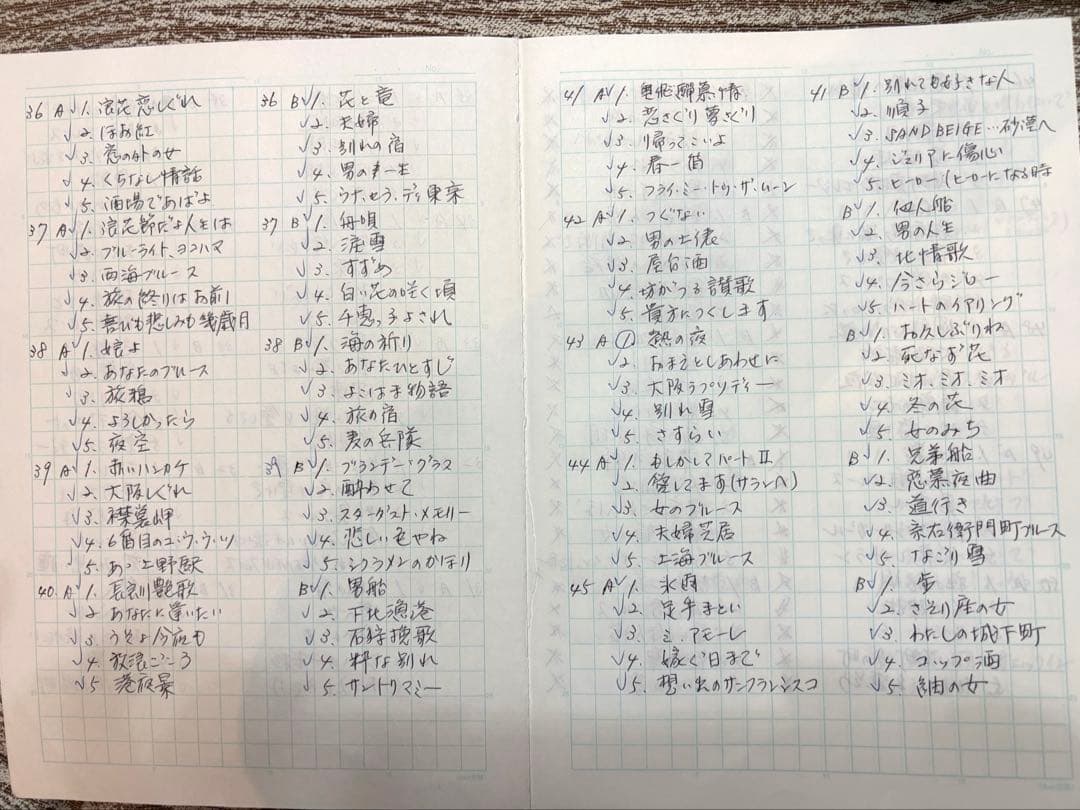 36 A √1. 浪花恋しぐれ
√2. ほお紅
√3. 恋の外の女
√4. くちなし情話
√5. 酒場であばよ
37 A √1. 浪花節だよ人生は
√2. ブルーライト、ヨコハマ
√3. 西海ブルース
√4. 旅の終りはお前
√5. 喜びも悲しみも幾歳月
38 A √1. 娘よ
√2. あなたのブルース
√3. 旅鴉
√4. よろしかったら
√5. 夜空
39 A √1. 赤いハンカチ
√2. 大阪しぐれ
√3. 襟裳岬
√4. 6番目のユ・ウ・ウ・ツ
√5. あゝ上野駅
40. A √1. 長良川艶歌
√2 あなたに逢いたい
√3. うそよ今夜も
√4. 放浪ごころ
√5 港夜景
36 B √1. 花と竜
√2. 夫婦
√3. 別れの宿
√4. 男の一生
√5. ウナ、セラ・ディ東京
37 B √1. 舟唄
√2. 涙雪
√3. すずめ
√4. 白い花の咲く頃
√5. 千恵っ子よされ
38 B √1. 海の祈り
√2. あなたひとすじ
√3. よこはま物語
√4. 旅の宿
√5. 麦の兵隊
39 B √1. ブランデーグラス
√2. 酔わせて
√3. スターダスト・メモリー
√4. 悲しい色やね
√5. シクラメンのかほり
B √1. 男船
√2. 下北漁港
√3. 石狩挽歌
√4. 粋な別れ
√5. サントリマミー
41 A √1. 慕情
√2. 恋さぐり夢さぐり
√3. 帰ってこいよ
√4. 春一番
√5. フライ・ミー・トゥ・ザ・ムーン
42 A √1. つぐない
√2. 男の土俵
√3. 屋台酒
√4. 坊がつる讃歌
√5. 貴方につくします
43 A ① 熱の夜
√2. おまえとしあわせに
√3. 大阪ラプソディー
√4. 別れ雪
√5. さすらい
44 A √1. もしかしてパートⅡ
√2. 愛してます(サランヘ)
√3. 女のブルース
√4. 夫婦芝居
√5. 上海ブルース
45 A √1. 氷雨
√2. 足手まとい
√3. ミ、アモーレ
√4. 嫁ぐ日まで
√5. 想い出のサンフランシスコ
41 B √1. 別れても好きな人
√2. 順子
√3. SAND BEIGE…砂漠へ
√4. ジェリアに傷心
√5. ヒーロー(ヒーローになる時
B √1. 他人船
√2. 男の人生
√3. 北情歌
√4. 今さらジロー
√5. ハートのイアリング
B √1. お久しぶりね
√2. 死なお花
√3. ミオ、ミオ、ミオ
√4. 冬の花
√5. 女のみち
B √1. 兄弟船
√2. 恋慕夜曲
√3. 道行き
√4. 宗右衛門町ブルース
√5. なごり雪
B √1. 歩
√2. さそり座の女
√3. わたしの城下町
√4. コップ酒
√5. 釧の女